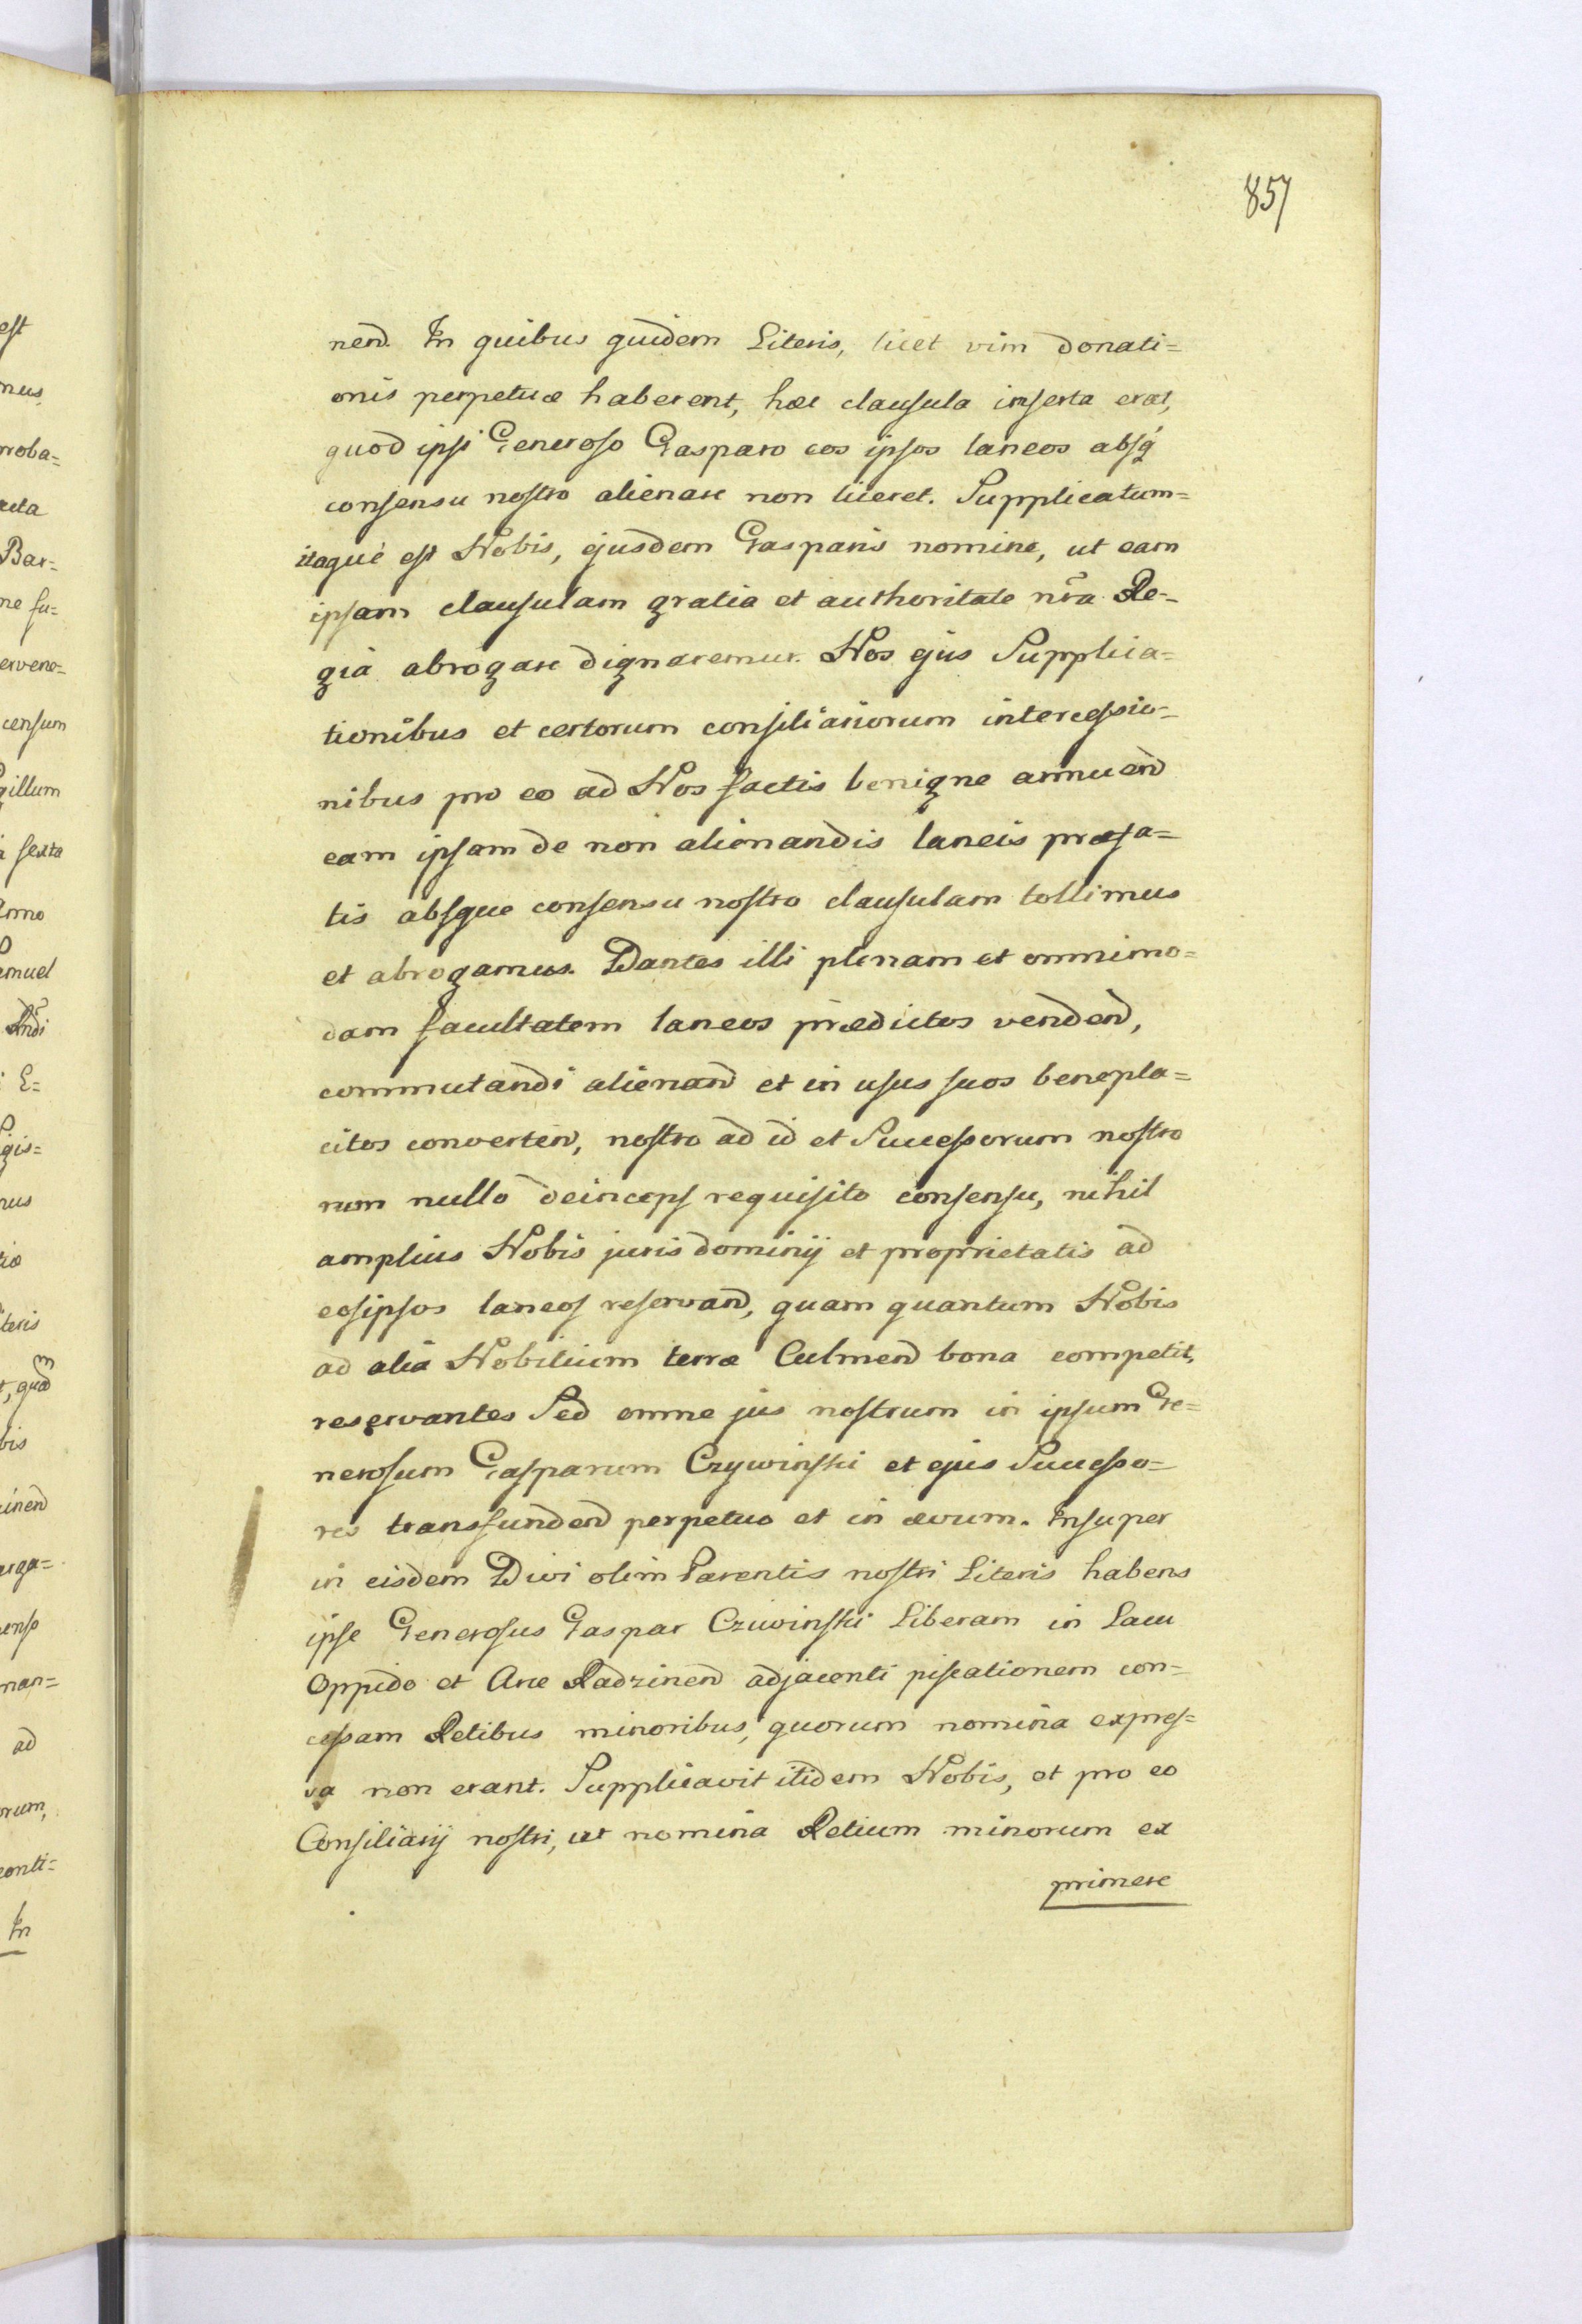 857
nend. In quibus quidem Literis, licet vim donati=
onis perpetuæ haberent, hæc clausula inserta erat,
quod ipsi Generoso Gasparo eos ipsos laneos absq́
consensu nostro alienare non liceret. Supplicatum=
itaquè est Nobis, ejusdem Gasparis nomine, ut eam
ipsam clausulam gratia et authoritate nr̃a Re=
giâ abrogare dignaremur. Nos ejus Supplica=
tionibus et certorum consiliariorum intercessio=
nibus pro eo ad Nos factis benigne annuend
eam ipsam de non alienandis laneis præfa=
tis absque consensu nostro clausulam tollimus
et abrogamus. Dantes illi plenam et omnimo=
dam facultatem laneos prædictos vendend,
commutandi alienand et in usus suos benepla=
citos converten, nostro ad id et Successorum nostro
rum nullo deinceps requisito consensu, nihil
amplius Nobis juris dominij et proprietatis ad
eosipsos laneos reservand, quam quantum Nobis
ad alia Nobilium terræ Culmend bona competit,
reservantes Sed omne jus nostrum in ipsum Ge=
nerosum Gasparum Czywinski et ejus Successo=
res transfundend perpetuo et in ævum. Insuper
in eisdem Divi olim Parentis nostri Literis habens
ipse Generosus Gaspar Cziwinski Liberam in Lacu
Oppido et Arce Radzinend adjacenti piscationem con=
cessam Retibus minoribus, quorum nomina expres=
sa non erant. Supplicavit itidem Nobis, et pro eo
Consiliarij nostri, ut nomina Retium minorum ex
primere